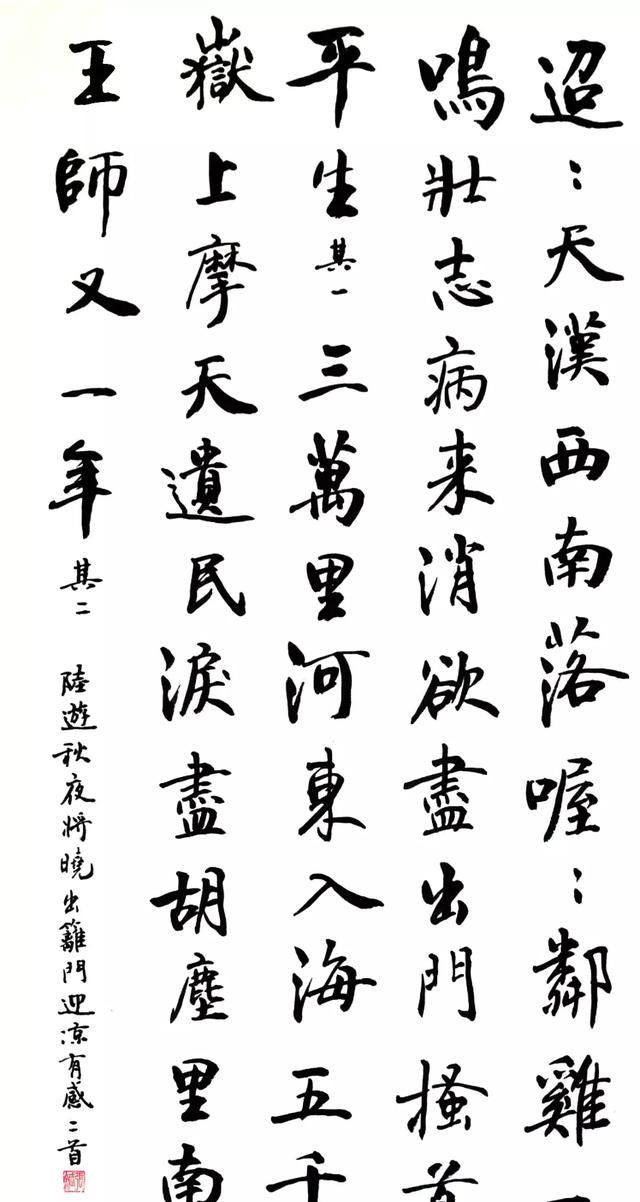 迢〻天漢西南落喔〻鄰雞
鳴壯志病来消欲盡出門搔首
平生其一三萬里河東入海五千
嶽上摩天遺民淚盡胡塵里南
王師又一年其二
陸遊秋夜将曉出籬門迎凉有感二首